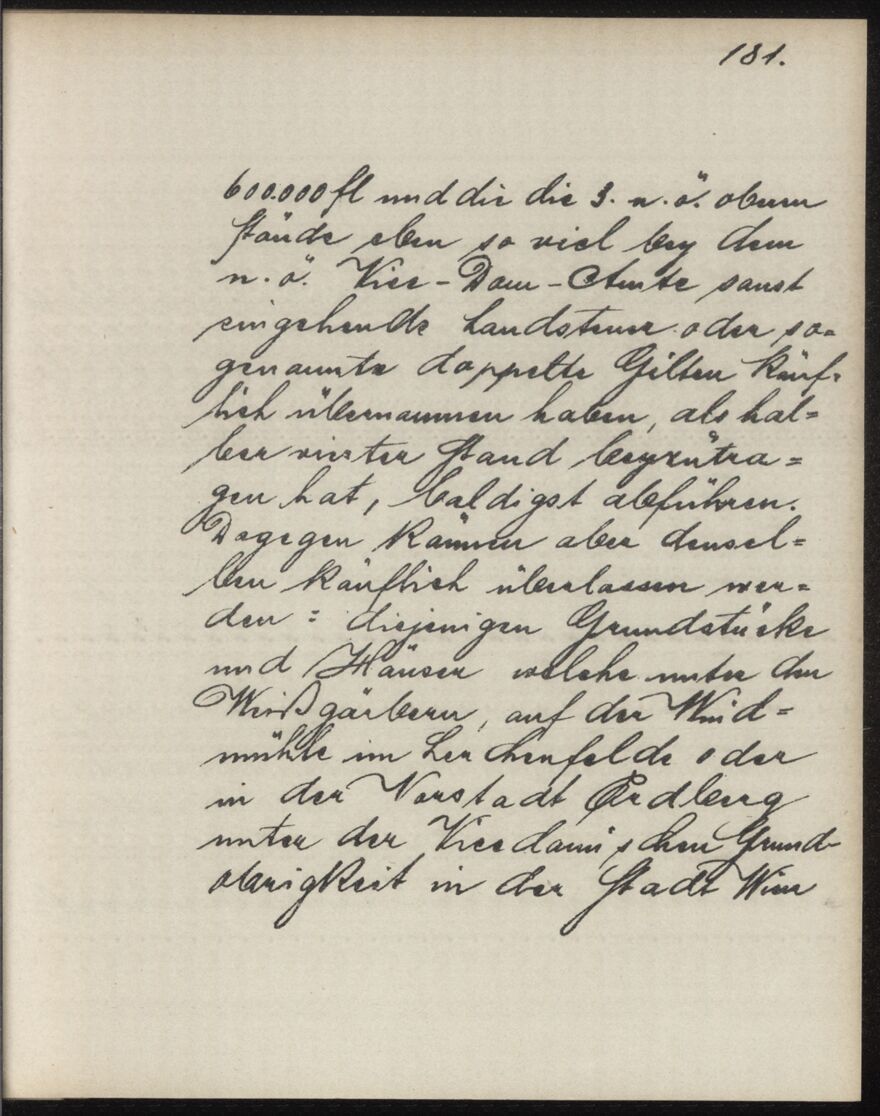 181.
600.000 fl und die die 3. n. ö. obern
Stände eben so viel bey dem
n. ö. Vice-Dom-Amte sonst
eingehende Landsteuer oder so-
genannte doppelte Gilten käuf-
lich übernommen haben, als hal-
ber vierter Stand beyzutra-
gen hat, baldigst abführen.
Dagegen können aber densel-
ben käuflich überlassen wer-
den : diejenigen Grundstücke
und Häuser welche unter den
Weißgärbern, auf der Wind-
mühle im Lerchenfelde oder
in der Vorstadt Erdberg
unter der Vicedomischen Grund-
obrigkeit in der Stadt Wien